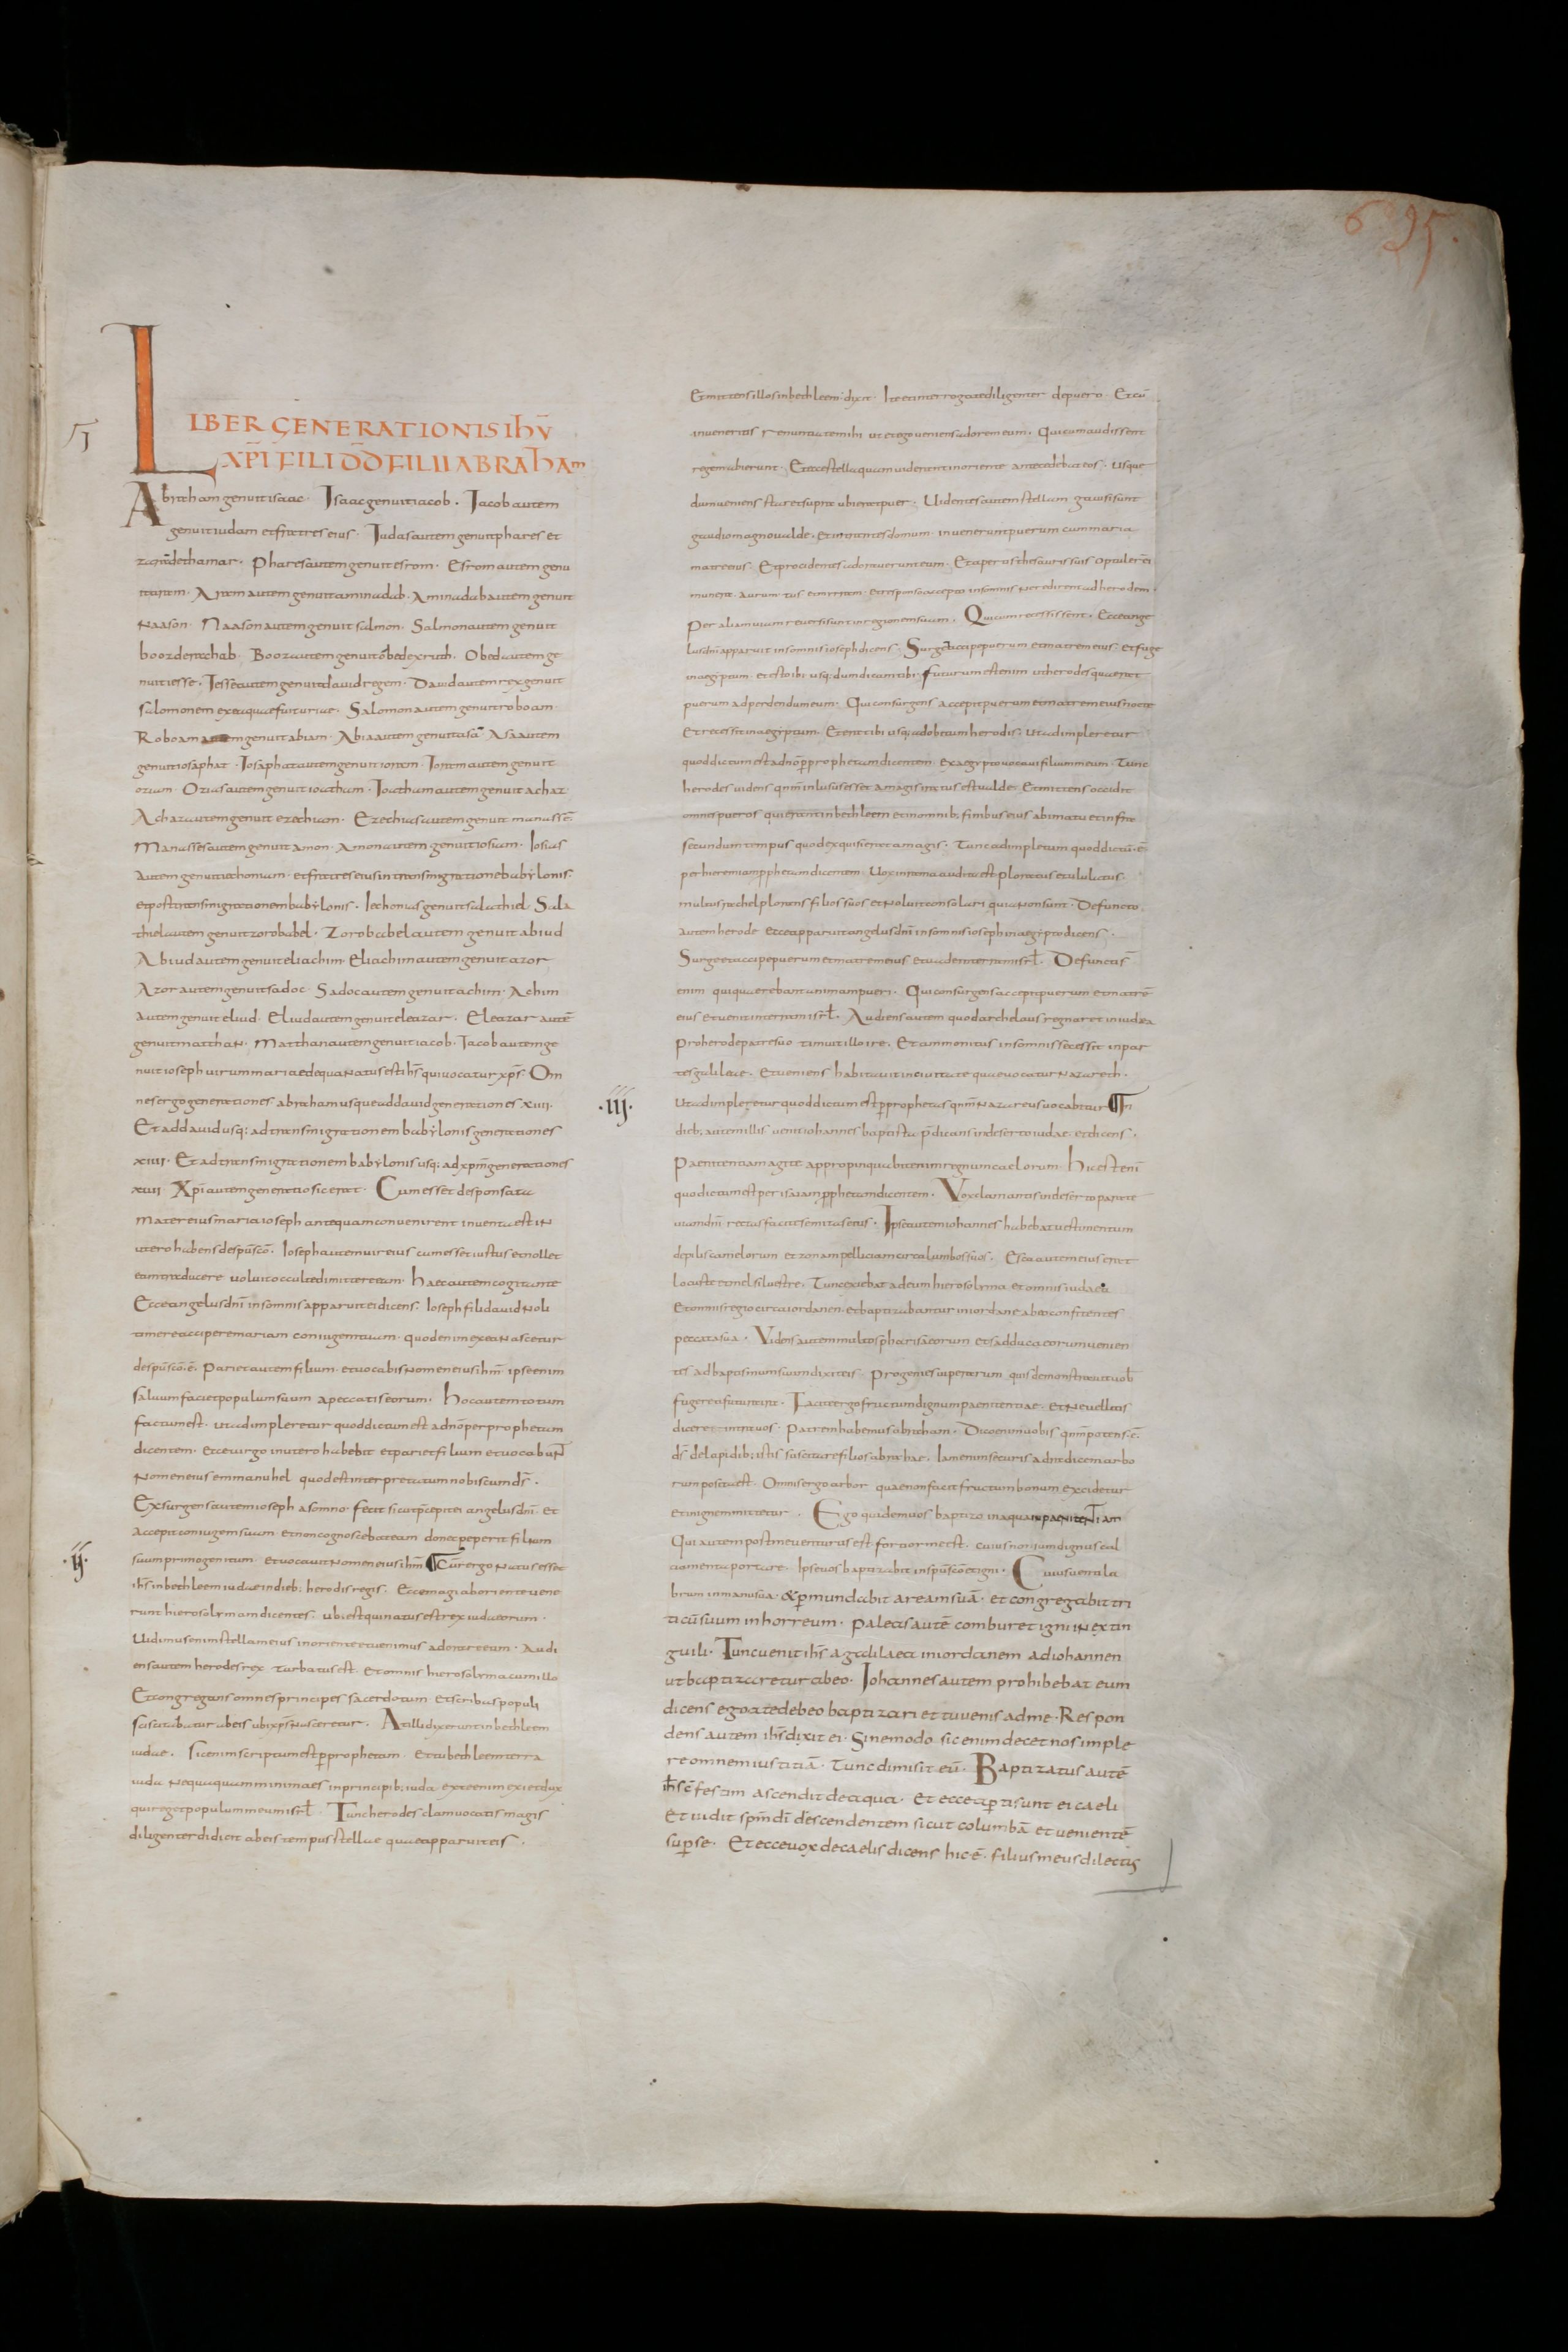 6 95.
LIBER GENERATIONIS IHV̄
XP̄I FILI DD̄ FILII ABRAHAm
Abraham genuit isaac. Isaac genuit iacob. Jacob autem
genuit iudam et fratres eius. Judas autem genuit phares et
zarādethamar. Phares autem genuit esrom. Esrom autem genu
it aram. Aram autem genuit aminadab. Aminadab autem genuit
Naason. Naason autem genuit salmon. Salmon autem genuit
booz derachab. Booz autem genuit obed exruth. Obed autem ge
nuit iesse. Jesse autem genuit dauid regem. Dauid autem rex genuit
salomonem ex ea quae fuit uriae. Salomon autem genuit roboam.
Roboam autem genuit abiam. Abia autem genuit asā Asa autem
genuit iosaphat. Iosaphat autem genuit ioram. Ioram autem genuit
oziam. Ozias autem genuit ioatham. Ioatham autem genuit achaz
Achaz autem genuit ezechiam. Ezechias autem genuit manassē
Manasses autem genuit amon. Amon autem genuit iosiam. Iosias
autem genuit iechoniam. et fratres eius in transmigratione babylonis.
et post transmigrationem babylonis. Iechonias genuit salathiel. Sala
thiel autem genuit zorobabel. Zorobabel autem genuit abiud
Abiud autem genuit eliachim. Eliachim autem genuit azor
Azor autem genuit sadoc. Sadoc autem genuit achim. Achim
autem genuit eliud. Eliud autem genuit eleazar. Eleazar autē
genuit matthaN. Matthan autem genuit iacob. Iacob autem ge
nuit ioseph uirum mariae de qua Natus est ihs̄ qui uocatur xp̄s. Om
nes ergo generationes abraham usque ad dauid generationes xiiii.
Et ad dauid usq; ad transmigrationem babylonis generationes
xiiii. Et ad transmigrationem babylonis usq; ad xpm̄ generationes
xiiii. Xpī autem generatio sic erat. Cum esset desponsata
mater eius maria ioseph antequam conuenirent inuenta est iN
utero habens de spū scō. Ioseph autem uir eius cum esset iustus et nollet
eam traducere uoluit occulte dimittere eam. haec autem eo cogitante
Ecce angelus dnī in somnis apparuit ei dicens. Ioseph fili dauid Noli
timere accipere mariam coniugem tuam. quod enim ex ea Nascetur
de spū scō ē. Pariet autem filium. et uocabis Nomen eius ihm̄ ipse enim
saluum faciet populum suum a peccatis eorum. hoc autem totum
factum est. ut adimpleretur quod dictum est adnō per prophetam
dicentem. Ecce uirgo in utero habebit et pariet filium et uocabuN̄
Nomen eius emmanuhel quod est interpretatum nobiscum ds̄.
Exsurgens autem ioseph a somno. fecit sicut p̄cepit ei angelus dnī. et
accepit coniugem suam. et non cognoscebat eam donec peperit filium
.ii. suum primogenitum. et uocauit Nomen eius ihm̄ Cum̄ ergo Natus esset
ihs̄ in bethleem iudae in dieb; herodis regis. Ecce magi ab oriente uene
runt hierosolymam dicentes. ubi est qui natus est rex iudaeorum.
Uidimus enim stellam eius in oriente et uenimus adorare eum. Audi
ens autem herodes rex turbatus est. Et omnis hierosolyma cum illo
Et congregans omnes principes sacerdotum et scribas populi
sciscitabatur ab eis ubi xps̄ Nasceretur. At illi dixerunt in bethleem
iudae. Sic enim scriptum est p̄ prophetam. Et tu bethleem terra
iuda Nequaquam minima es in principib; iuda. ex te enim exiet dux
qui reget populum meum isrl̄. Tunc herodes clam uocatis magis
diligenter didicit ab eis tempus stellae quae apparuit eis.
Et mittens illos in bethleem. dixit. Ite et interrogate diligenter de puero. Et cū
inueneritis renuntiate mihi ut et ego ueniens adorem eum. Qui cum audissent
regem abierunt. Et ecce stella quam uiderant in oriente antecedebat eos. usque
dum ueniens staret supra ubi erat puer. Uidentes autem stellam gauisi sunt
gaudio magno ualde. et intrantes domum. inuenerunt puerum cum maria
matre eius. Et procidentes adorauerunt eum. Et apertis thesauris suis optuler ei
munera. aurum tus et myrram. et responso accepto in somnis Ne redirent ad herodem.
Per aliam uiam reuersi sunt in regionem suam. Qui cum recessissent. Ecce ange
lus dnī apparuit in somnis ioseph dicens. Surge et accipe puerum et matrem eius. et fuge
in aegyptum. et esto ibi usq; dum dicam tibi. futurum est enim ut herodes quaerat
puerum ad perdendum eum. Qui consurgens accepit puerum et matrem eius nocte
Et recessit in aegyptum. Et erat ibi usq; ad obitum herodis. ut adimpleretur
quod dictum est adnō p̄ prophetam dicentem. ex aegypto uocaui filium meum. Tunc
herodes uidens qnm̄ inlusus esset a magis iratus est ualde. Et mittens occidit
omnes pueros qui erant in bethleem et in omnib; finibus eius a bimatu et infra
secundum tempus quod exquisierat a magis. Tunc adimpletum quod dictū. ē
per hieremiam pphetam dicentem. Uox in rama audita est ploratus et ululatus
multus rachel plorans filios suos et Noluit consolari quia Non sunt. Defuncto
autem herode ecce apparuit angelus dnī in somnis ioseph in aegypto dicens.
Surge et accipe puerum et matrem eius et uade in terram isrl̄. Defuncti s̄
enim qui quaerebant animam pueri. Qui consurgens accepit puerum et matrē
eius et uenit in terram isrl̄. Audiens autem quod archelaus regnaret in iudea
Pro herode patre suo timuit illo ire. Et ammonitus in somnis secessit in par
tes galileae. Et ueniens habitauit in ciuitate quae uocatur Nazareth.
.iii. Ut adimpleretur quod dictum est p̄ prophetas qnm̄ Nazareus uocabitur In
dieb; autem illis uenit iohannes baptista p̄dicans in deserto iudae. et dicens.
Paenitentiam agite appropinquabit enim regnum caelorum. hic est enī
quo dictum est per isaiam pphetam dicentem. Vox clamantis in deserto parate
uiam dnī rectas facite semitas eius. Ipse autem iohannes habebat uestimentum
de pilis camelorum et zonam pelliciam circa lumbos suos. Esca autem eius erat
locustae et mel siluestre. Tunc exiebat ad eum hierosolyma et omnis iudaea
Et omnis regio circa iordanen. et baptizabantur in iordane ab eo confitentes
peccata sua. Videns autem multos pharisaeorum et sadducaeorum uenien
tes ad baptismum suum dixit eis. Progenies uiperarum quis demonstrauit uob̄
fugere a futura ira. Facite ergo fructum dignum paenitentiae. et Ne uelitis
dicere intra uos. Patrem habemus abraham. Dico enim uobis qnm̄ potens. ē.
ds̄ de lapidib; istis suscitare filios abrahae. Iam enim securis ad radicem arbo
rum posita est. Omnis ergo arbor quae non facit fructum bonum excidetur
et in ignem mittetur. Ego quidem uos baptizo in aqua in paeniteNtiam
Qui autem post me uenturus est fortior me est. cuius non sum dignus cal
ciamenta portare. Ipse uos baptizabit in spū scō et igni. Cuius uentila
brum in manu sua. & p̄mundabit aream suā. et congregabit tri
ticū suum in horreum. paleas autē comburet igni iNextin
guili. Tunc uenit ihs̄ a galilaea in iordanem ad iohannen
ut baptizaretur ab eo. Iohannes autem prohibebat eum
dicens ego a te debeo baptizari et tu uenis ad me. Respon
dens autem ihs̄ dixit ei. Sine modo. sic enim decet nos imple
re omnem iustitiā. Tunc dimisit eū. Baptizatus autē
ihs̄ cōfestim ascendit de aqua. et ecce ap̄ti sunt ei caeli
Et uidit spm̄ dī descendentem sicut columbā et uenientē
sup̄ se. Et ecce uox de caelis dicens hic ē. filius meus dilectus